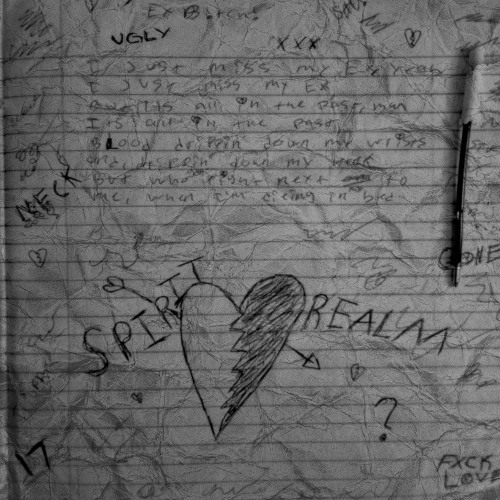 UGLY
XXX
I Just miss my Ex, yeah
I Just miss my Ex
but its all in the past, man
Its all in the past
Blood drippin down my wrists
and drippin down my neck
But who right next to
me, when I'm dieing in bed
NECK
GONE
SPIRIT REALM
?
17
FXCK
LOVE